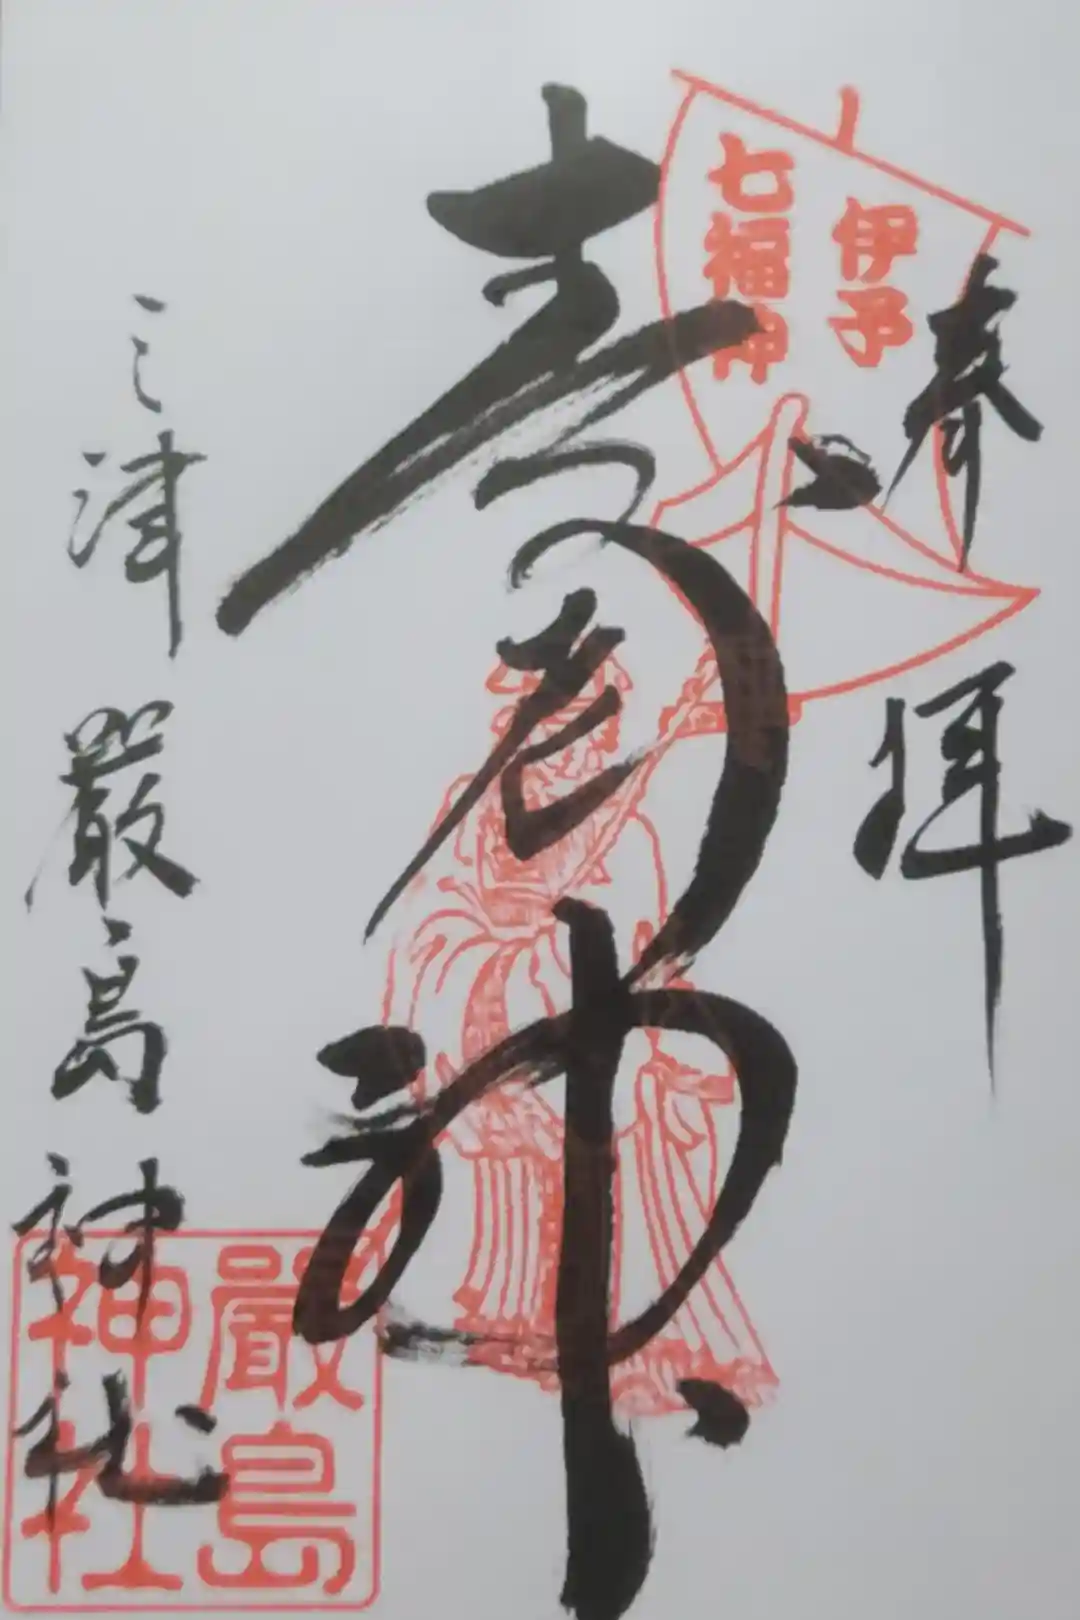 奉拝
伊予
七福神
寿老神
三津 嚴島神社
嚴島
神社